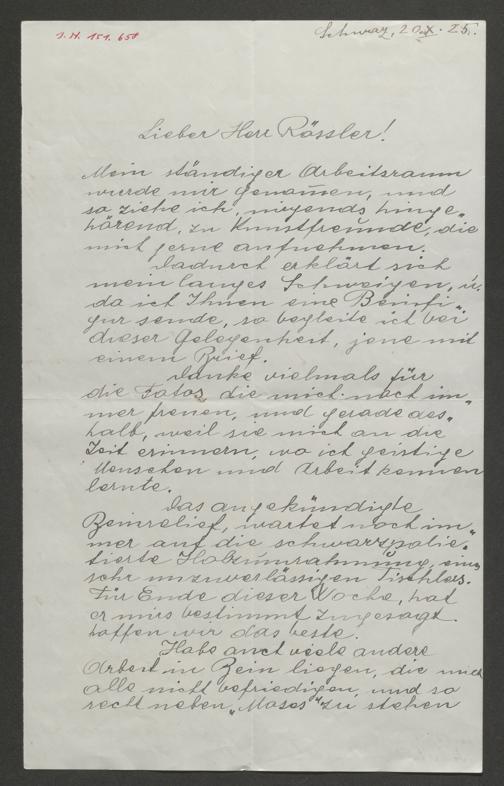 J. N. 151.658
Schwaz, 20.X. 25.
Lieber Herr Rössler!
Mein ständiger Arbeitsraum
wurde mir genom̅en, und
so ziehe ich, nirgends hinge„
hörend, zu Kunstfreunde, die
mich gerne aufnehmen.
Dadurch erklärt sich
mein langes Schweigen, u.
da ich Ihnen eine Beinfi„
gur sende, so begleite ich bei
dieser Gelegenheit, jene mit
einem Brief.
Danke vielmals für
die Fotos, die mich noch im„
mer freuen, und gerade des„
halb, weil sie mich an die
Zeit erinnern, wo ich geistige
Menschen und Arbeit kennen
lernte.
Das angekündigte
Beinrelief, wartet noch im„
mer auf die schwarzpolie„
tierte Holzumrahmung, eines
sehr unzuverlässigen Tischlers.
Für Ende dieser Woche, hat
er mirs bestimmt zugesagt.
hoffen wir das beste.
Habe auch viele andere
Arbeit in Bein liegen, die mich
alle nicht befriedigen, und so
recht neben „Moses" zu stehen